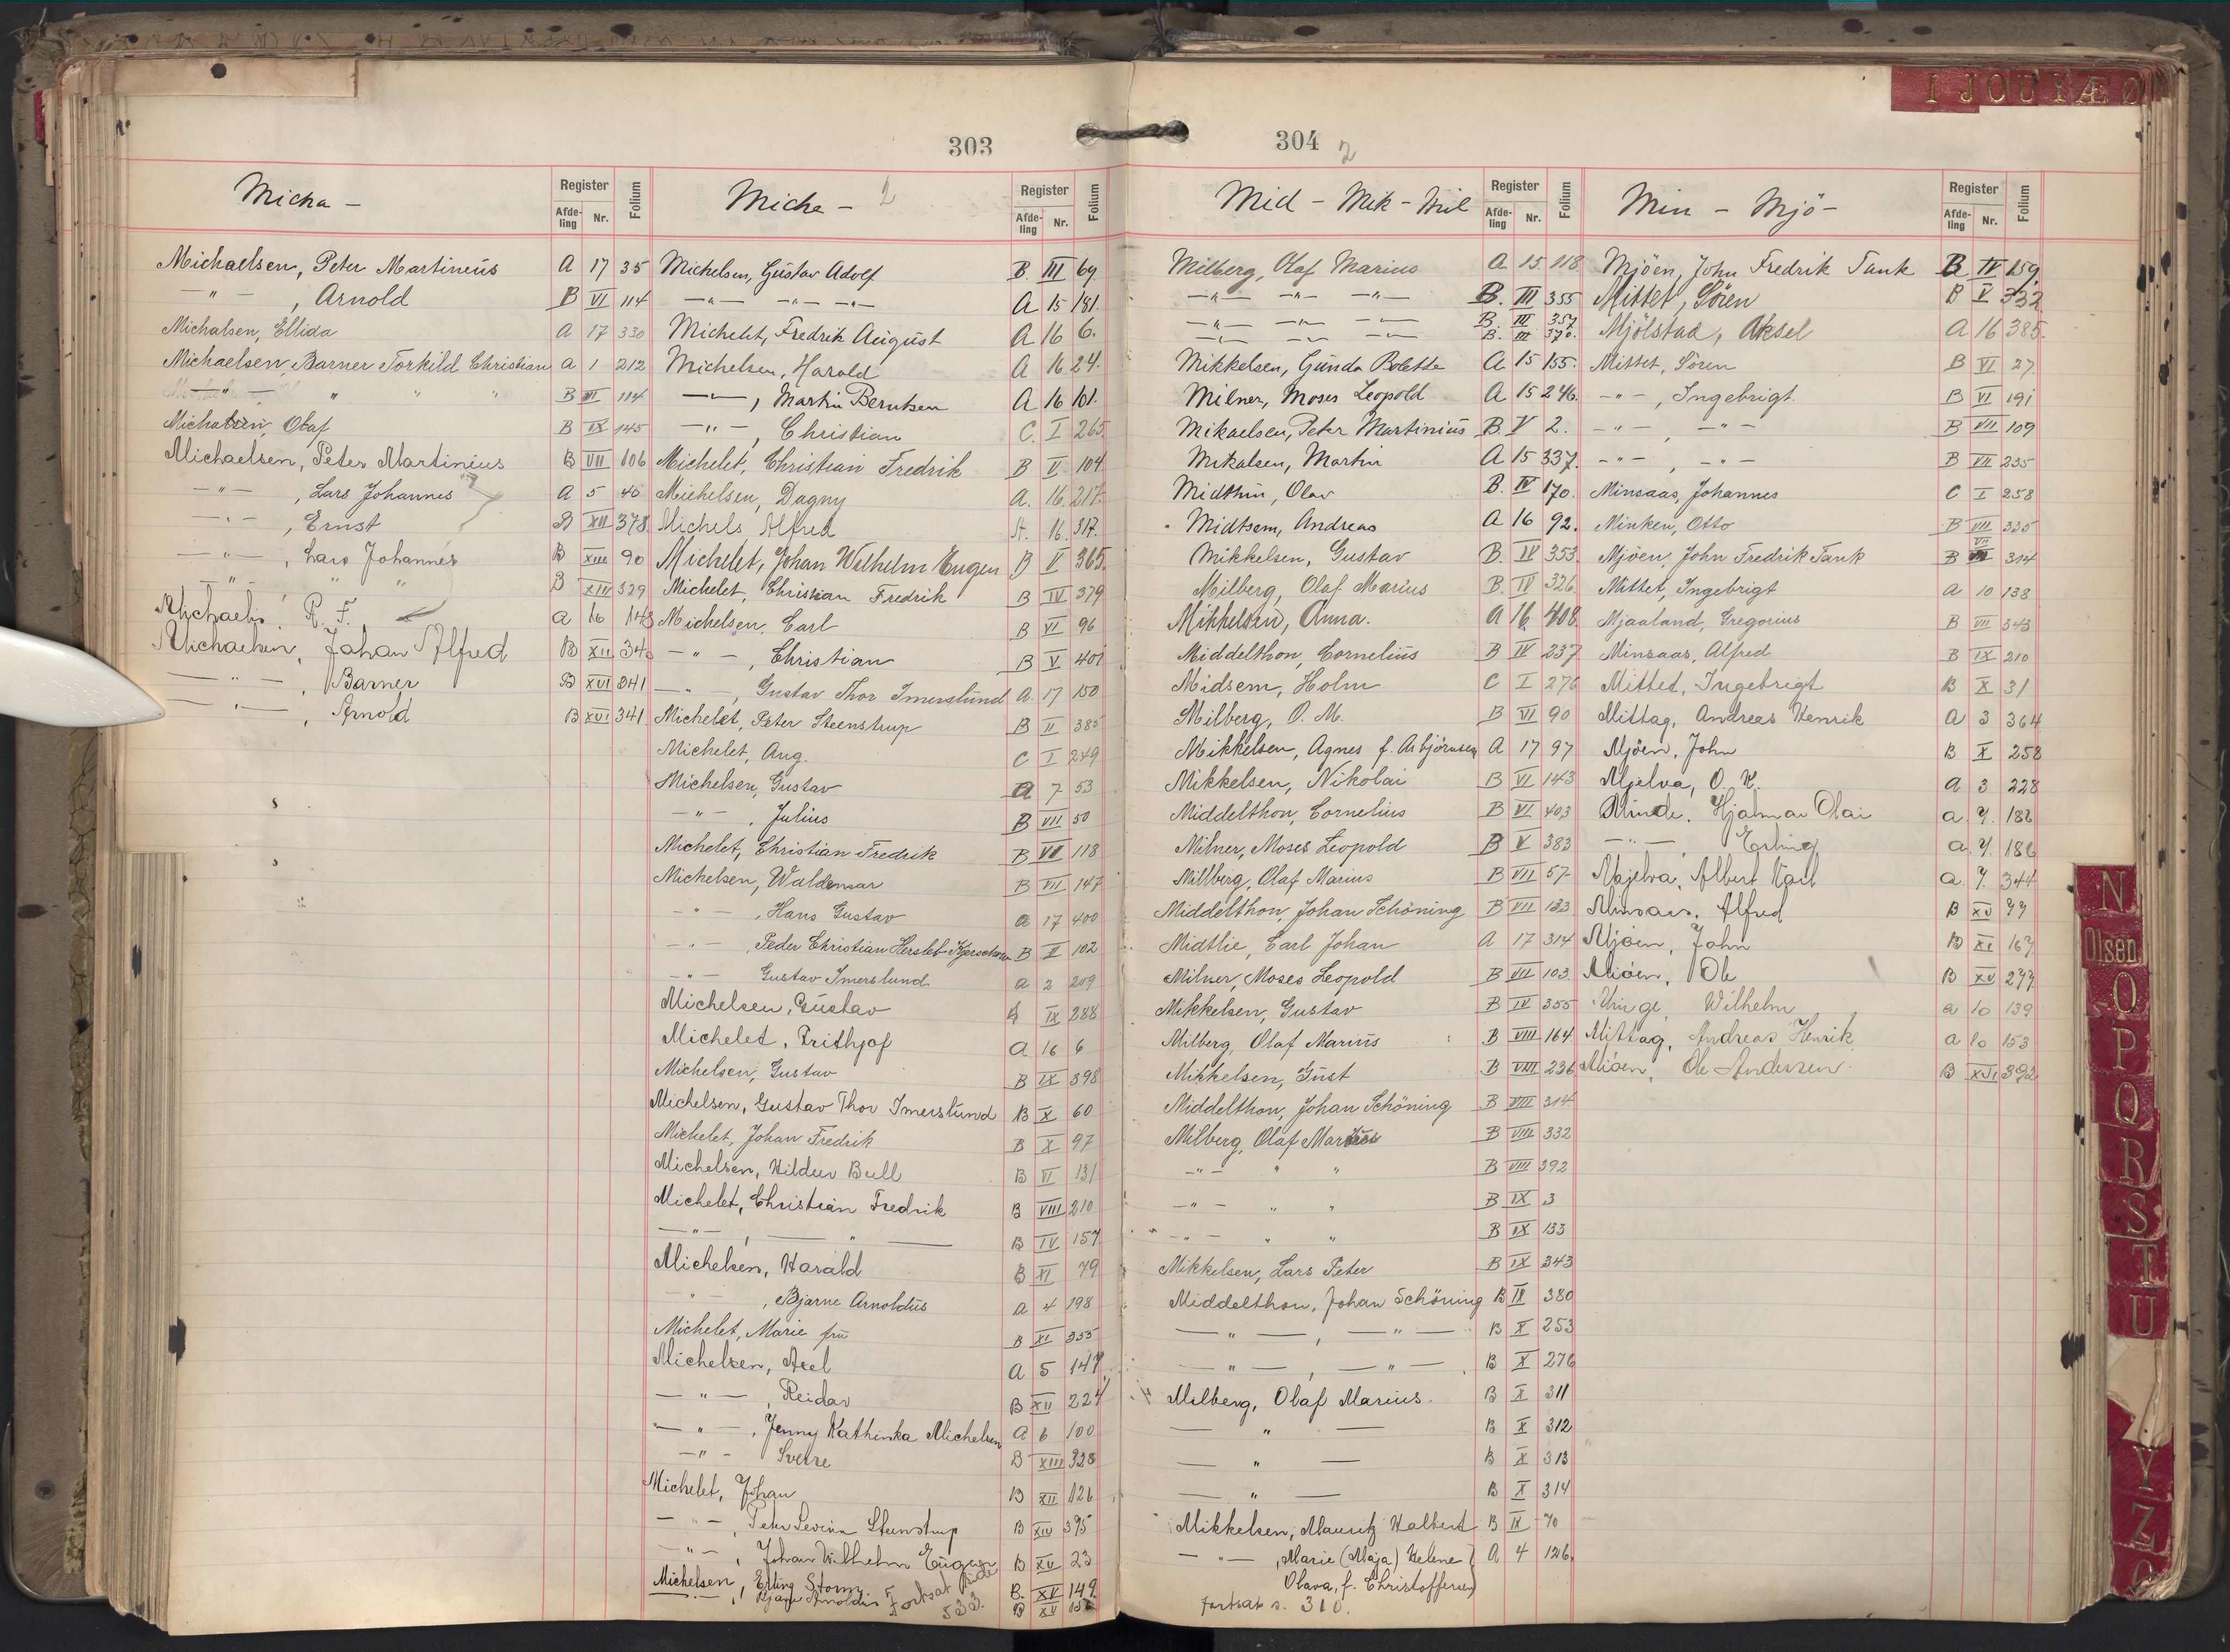 I J O U Y Æ Ø
303
Micha -
Register
Afde-ling Nr. Folium
Michaelsen, Peter Martineus A 17 35
— " — , Arnold B VI 114
Michalsen, Ellida A 17 330
Michaelsen, Barner Torkild Christian A 1 212
" " " B III 114
Michalsen, Olaf B IX 145
Michaelsen, Peter Martinius B VII 106
— " — , Lars Johannes A 5 40
— " — , Ernst B XII 378
— " — , Lars Johannes B XIII 90
— " — " " B XIII 329
Michaelis, R. F. a 16 143
Michaelsen, Johan Alfred B XII 340
— " — , Barner B XVI 341
— " — , Arnold B XVI 341
Miche - 2
Register
Afde-ling Nr. Folium
Michelsen, Gustav Adolf B. III 69
— " — — " — — " — A 15 181.
Michelet, Fredrik August A 16 6.
Michelsen, Harald A 16 24.
— " — , Martin Berntsen A 16 101.
— " — , Christian C. I 265
Michelet, Christian Fredrik B V 104
Michelsen, Dagny A. 16. 217.
Michels Alfred A. 16. 317.
Michelet, Johan Wilhelm Eugen B V 365
Michelet, Christian Fredrik B IV 379
Michelsen, Carl B VI 96
— " — , Christian B V 401
— " — , Gustav Thor Imerslund A. 17 150
Michelet, Peter Steenstrup B II 385
Michelet, Aug. C I 249
Michelsen, Gustav A 7 53
— " — , Julius B VII 50
Michelet, Christian Fredrik B VII 118
Michelsen, Waldemar B VII 147
— " — , Hans Gustav a 17 400
— " — , Peder Christian Hersleb Kjerschow B II 102
— " — Gustav Imerslund a 2 209
Michelsen, Gustav B IX 288
Michelet, Frithjof a 16 6
Michelsen, Gustav B IX 398
Michelsen, Gustav Thor Imerslund B X 60
Michelet, Johan Fredrik B X 97
Michelsen, Hildur Bull B VI 131
Michelet, Christian Fredrik B VIII 210
— " — , — " — B IV 157
Michelsen, Harald B XI 79
— " — , Bjarne Arnoldus a 4 198
Michelet, Marie fru B XI 355
Michelsen, Axel A 5 147
— " — , Reidar B XII 224
— " — , Jenny Kathinka Michelsen A 6 100
— " — Sverre B XIII 328
Michelet, Johan B XII 126
— " — , Peter Severin Steenstrup B XIV 395
— " — , Johan Wilhelm Eugen B XV 23
Michelsen, Erling Storm. B. XV 149
— " — , Bjarne Arnoldus B XV 150
Fortsat side 533.
304 2
Mid - Mik - Mil
Register
Afde-ling Nr. Folium
Milberg, Olaf Marius A 15. 118
— " — — " — — " — B. III 355
— " — — " — — " — B. III 357
— " — — " — — " — B. III 370.
Mikkelsen, Gunda Bolette A 15 155.
Milner, Moses Leopold A 15 246.
Mikaelsen, Peter Martinius B. V 2.
Mikalsen, Martin A 15 337.
Midthun, Olav B. IV 170.
Midtsem, Andreas A 16 92.
Mikkelsen, Gustav B. IV 353.
Milberg, Olaf Marius B. IV 326.
Mikkelsen, Anna. A 16 408.
Middelthon, Cornelius B IV 237
Midsem, Holm C I 276
Milberg, O. M. B VI 90
Mikkelsen, Agnes f. Asbjörnsen A 17 97
Mikkelsen, Nikolai B VI 143
Middelthon, Cornelius B VI 403
Milner, Moses Leopold B V 383
Millberg, Olaf Marius B VII 57
Middelthon, Johan Schöning B VII 133
Midtlie, Carl Johan A 17 314
Milner, Moses Leopold B VII 103
Mikkelsen, Gustav B IV 355
Milberg, Olaf Marius B VIII 164
Mikkelsen, Gust B VIII 236
Middelthon, Johan Schöning B VIII 314
Milberg, Olaf Marius B VIII 332
— " — " " B VIII 392
— " — " " B IX 3
— " — " " B IX 133
Mikkelsen, Lars Peter B IX 343
Middelthon, Johan Schöning B IX 380
— " — , — " — B X 253
— " — , — " — B X 276
Milberg, Olaf Marius. B X 311
— " — B X 312
— " — B X 313
— " — B X 314
Mikkelsen, Mauritz Halbert B IX 70
— " — , Marie (Maja) Helene A 4 126.
Olava, f. Christoffersen
fortsat s. 310.
Min - Mjö -
Register
Afde-ling Nr. Folium
Mjöen, John Fredrik Tank B IV 159
Mittet, Sören B V 332
Mjölstad, Aksel A 16 385.
Mittet, Sören B VI 27
— " — , Ingebrigt. B VI 191
— " — , — " — B VII 109
— " — , — " — B VII 235
Minsaas, Johannes C I 258
Minken, Otto B VII 335
Mjöen, John Fredrik Tank B VII 314
Mittet, Ingebrigt A 10 138
Mjaaland, Gregorius B VII 343
Minsaas, Alfred B IX 210
Mittet, Ingebrigt B X 31
Mittag, Andreas Henrik A 3 364
Mjöen, John B X 258
Mjelva, O. K. A 3 228
Minde, Hjalmar Olai a. 7. 186
— " — , Erling a. 7. 186
Mjelva, Albert Karl a. 7. 344
Minsaas, Alfred B XV 77
Mjöen, John B XI 167
Mjöen, Ole B XV 277
Minge, Wilhelm a 10 139
Mittag, Andreas Henrik a 10 153
Mjöen, Ole Andersen B XVI 392
N
Olsen
O
P
Q
R
S
T
U
Y
Z